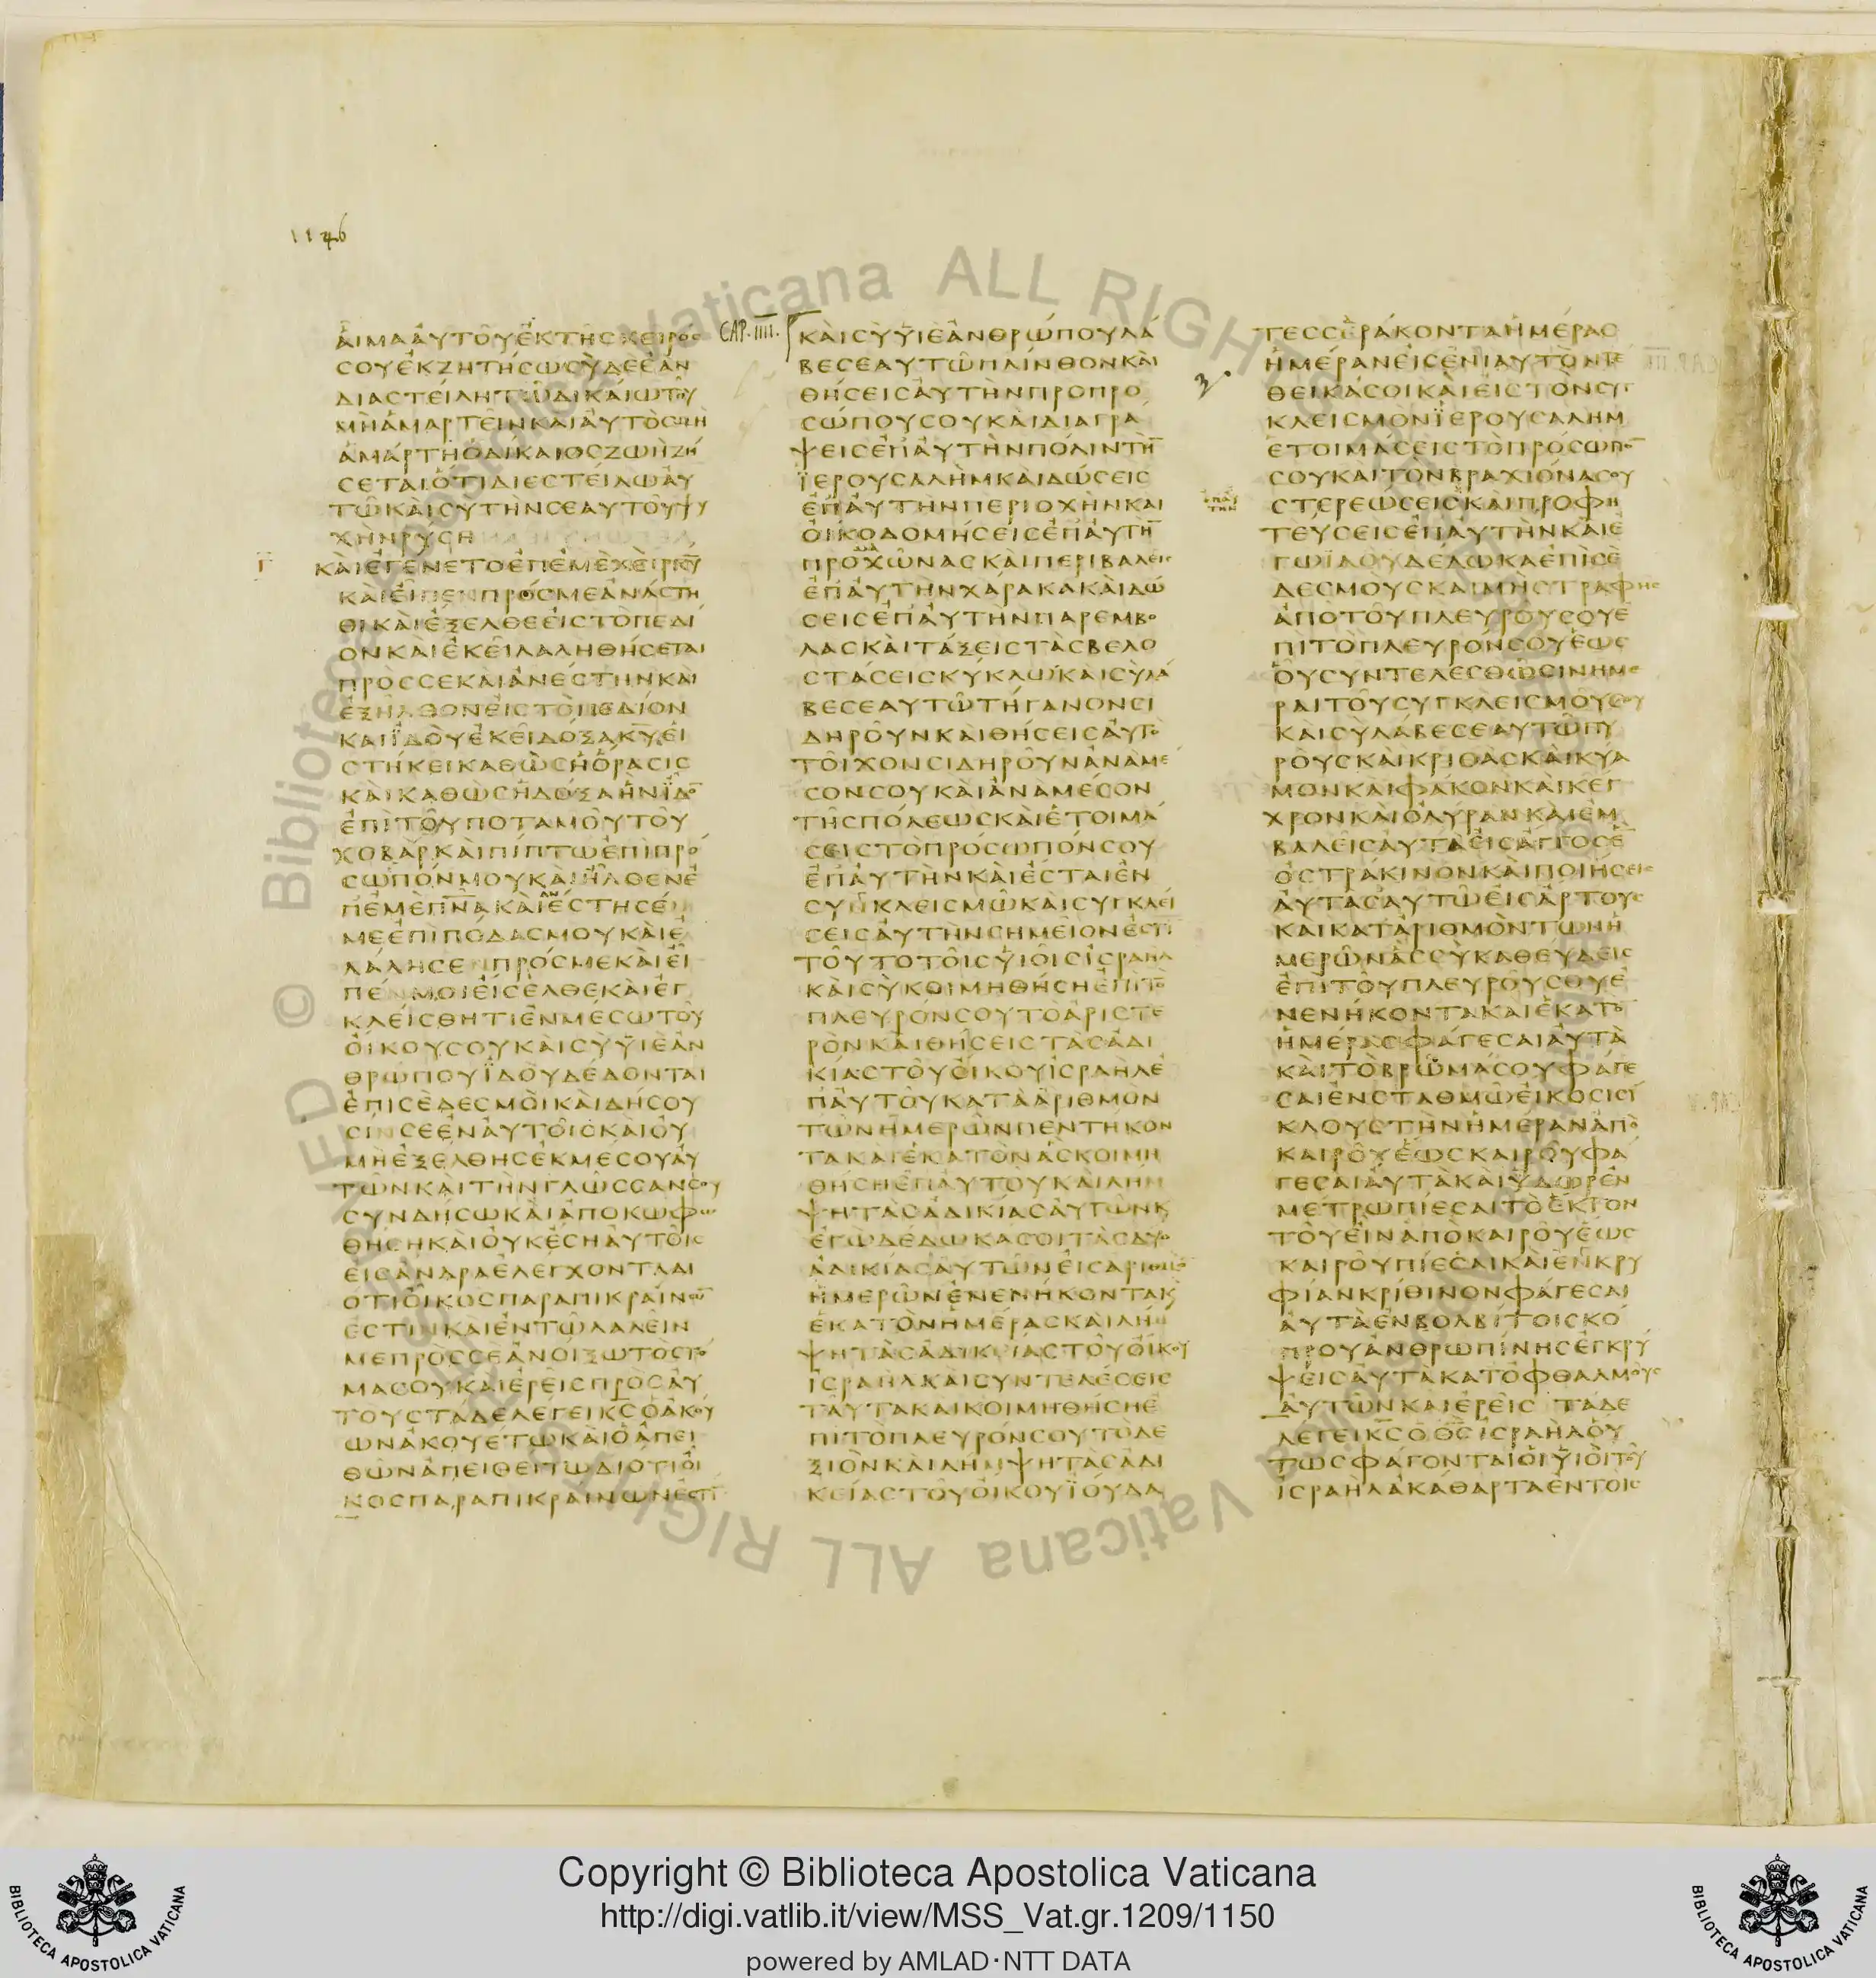 1146
ΑΙΜΑΑΥΤΟΥΕΚΤΗCΧΕΙΡΟC
CΟΥΕΚΖΗΤΗCΩCΥΔΕΕΑΝ
ΔΙΑCΤΕΙΛΗΤΩΔΙΚΑΙΩΤΟΥ
ΜΗΑΜΑΡΤΕΙΝΚΑΙΑΥΤΟCΜΗ
ΑΜΑΡΤΗΟΔΙΚΑΙΟCΖΩΗΖΗ
CΕΤΑΙΟΤΙΔΙΕCΤΕΙΛΩΑΥ
ΤΩΚΑΙCΥΤΗΝCΕΑΥΤΟΥΨΥ
ΧΗΝΡΥCΗ
Γ
ΚΑΙΕΓΕΝΕΤΟΕΠΕΜΕΧΕΙΡΚΥ
ΚΑΙΕΙΠΕΝΠΡΟCΜΕΑΝΑCΤΗ
ΘΙΚΑΙΕΞΕΛΘΕΕΙCΤΟΠΕΔΙ
ΟΝΚΑΙΕΚΕΙΛΑΛΗΘΗCΕΤΑΙ
ΠΡΟCCΕΚΑΙΑΝΕCΤΗΝΚΑΙ
ΕΞΗΛΘΟΝΕΙCΤΟΠΕΔΙΟΝ
ΚΑΙΪΔΟΥΕΚΕΙΔΟΞΑΚΥΕΙ
CΤΗΚΕΙΚΑΘΩCΗΟΡΑCΙC
ΚΑΙΚΑΘΩCΗΔΟΞΑΗΝΪΔΟ̅
ΕΠΙΤΟΥΠΟΤΑΜΟΥΤΟΥ
ΧΟΒΑΡΚΑΙΠΙΠΤΩΕΠΙΠΡΟ
CΩΠΟΝΜΟΥΚΑΙΗΛΘΕΝΕ
ΠΕΜΕΠΝΑΚΑΙΕCΤΗCΕ
ΜΕΕΠΙΠΟΔΑCΜΟΥΚΑΙΕ
ΛΑΛΗCΕΠΡΟCΜΕΚΑΙΕΙ
ΠΕΝΜΟΙΕΙCΕΛΘΕΚΑΙΕΓ
ΚΛΕΙCΘΗΤΙΕΝΜΕCΩΤΟΥ
ΟΙΚΟΥCΟΥΚΑΙCΥΫΙΕΑΝ
ΘΡΩΠΟΥΪΔΟΥΔΕΔΟΝΤΑΙ
ΕΠΙCΕΔΕCΜΟΙΚΑΙΔΗCΟΥ
CΙΝCΕΕΝΑΥΤΟΙCΚΑΙΟΥ
ΜΗΕΞΕΛΘΗCΕΚΜΕCΟΥΑΥ
ΤΩΝΚΑΙΤΗΝΓΛΩCCΑΝCΟΥ
CΥΝΔΗCΩΚΑΙΑΠΟΚΩΦΩ
ΘΗCΗΚΑΙΟΥΚΕCΗΑΥΤΟΙC
ΕΙCΑΝΔΡΑΕΛΕΓΧΟΝΤΑΔΙ
ΟΤΙΟΙΚΟCΠΑΡΑΠΙΚΡΑΙΝΩ̅
ΕCΤΙΝΚΑΙΕΝΤΩΛΑΛΕΙΝ
ΜΕΠΡΟCCΕΑΝΟΙΞΩΤΟCΤΟ
ΜΑCΟΥΚΑΙΕΡΕΙCΠΡΟCΑΥ
ΤΟΥCΤΑΔΕΛΕΓΕΙΚCΟΑΚΟΥ
ΩΝΑΚΟΥΕΤΩΚΑΙΟΑΠΕΙ
ΘΩΝΑΠΕΙΘΕΙΤΩΔΙΟΤΙΟΙ
ΚΟCΠΑΡΑΠΙΚΡΑΙΝΩΝΕCΤΙ̅
CAP. IIII.
ΚΑΙCΥΫΙΕΑΝΘΡΩΠΟΥΛΑ
ΒΕCΕΑΥΤΩΠΛΙΝΘΟΝΚΑΙ
ΘΗCΕΙCΑΥΤΗΝΠΡΟΠΡΟ
CΩΠΟΥCΟΥΚΑΙΔΙΑΓΡΑ
ΨΕΙCΕΠΑΥΤΗΝΠΟΛΙΝΤΗ̅
ΪΕΡΟΥCΑΛΗΜΚΑΙΔΩCΕΙC
ΕΠΑΥΤΗΝΠΕΡΙΟΧΗΝΚΑΙ
ΟΙΚΟΔΟΜΗCΕΙCΕΠΑΥΤΗ̅
ΠΡΟΧΩΝΑCΚΑΙΠΕΡΙΒΑΛΕΙC
ΕΠΑΥΤΗΝΧΑΡΑΚΑΚΑΙΔΩ
CΕΙCΕΠΑΥΤΗΝΠΑΡΕΜΒΟ
ΛΑCΚΑΙΤΑΞΕΙCΤΑCΒΕΛΟ
CΤΑCΕΙCΚΥΚΛΩΚΑΙCΥΛΑ
ΒΕCΕΑΥΤΩΤΗΓΑΝΟΝCΙ
ΔΗΡΟΥΝΚΑΙΘΗCΕΙCΑΥΤΟ
ΤΟΙΧΟΝCΙΔΗΡΟΥΝΑΝΑΜΕ
CΟΝCΟΥΚΑΙΑΝΑΜΕCΟΝ
ΤΗCΠΟΛΕΩCΚΑΙΕΤΟΙΜΑ
CΕΙCΤΟΠΡΟCΩΠΟΝCΟΥ
ΕΠΑΥΤΗΝΚΑΙΕCΤΑΙΕΝ
CΥΝΚΛΕΙCΜΩΚΑΙCΥΓΚΛΕΙ
CΕΙCΑΥΤΗΝCΗΜΕΙΟΝΕCΤΙ̅
ΤΟΥΤΟΤΟΙCΥΙΟΙCΙCΡΑΗΛ
ΚΑΙCΥΚΟΙΜΗΘΗCΗΕΠΙΤΟ
ΠΛΕΥΡΟΝCΟΥΤΟΑΡΙCΤΕ
ΡΟΝΚΑΙΘΗCΕΙCΤΑCΑΔΙ
ΚΙΑCΤΟΥΟΙΚΟΥΙCΡΑΗΛΕ
ΠΑΥΤΟΥΚΑΤΑΑΡΙΘΜΟΝ
ΤΩΝΗΜΕΡΩΝΠΕΝΤΗΚΟΝ
ΤΑΚΑΙΕΚΑΤΟΝΑCΚΟΙΜΗ
ΘΗCΗΕΠΑΥΤΟΥΚΑΙΛΗΜ
ΨΗΤΑCΑΔΙΚΙΑCΑΥΤΩΝΚ
ΕΓΩΔΕΔΩΚΑCΟΙΤΑCΔΥΟ
ΑΔΙΚΙΑCΑΥΤΩΝΕΙCΑΡΙΘΜΟ̅
ΗΜΕΡΩΝΕΝΕΝΗΚΟΝΤΑΚ
ΕΚΑΤΟΝΗΜΕΡΑCΚΑΙΛΗΜ
ΨΗΤΑCΑΔΙΚΙΑCΤΟΥΟΙΚΟΥ
ΙCΡΑΗΛΚΑΙCΥΝΤΕΛΕCΕΙC
ΤΑΥΤΑΚΑΙΚΟΙΜΗΘΗCΗΕ
ΠΙΤΟΠΛΕΥΡΟΝCΟΥΤΟΔΕ
ΞΙΟΝΚΑΙΛΗΜΨΗΤΑCΑΔΙ
ΚΕΙΑCΤΟΥΟΙΚΟΥΪΟΥΔΑ
ΤΕCCΕΡΑΚΟΝΤΑΗΜΕΡΑC
ΗΜΕΡΑΝΕΙCΕΝΙΑΥΤΟΝΤΕ
ΘΕΙΚΑCΟΙΚΑΙΕΙCΤΟΝCΥΓ
ΚΛΕΙCΜΟΝΪΕΡΟΥCΑΛΗΜ
ΕΤΟΙΜΑCΕΙCΤΟΠΡΟCΩΠΟ̅
CΟΥΚΑΙΤΟΝΒΡΑΧΙΟΝΑCΟΥ
CΤΕΡΕΩCΕΙCΚΑΙΠΡΟΦΗ
ΤΕΥCΕΙCΕΠΑΥΤΗΝΚΑΙΕ
ΓΩΪΔΟΥΔΕΔΩΚΑΕΠΙCΕ
ΔΕCΜΟΥCΚΑΙΜΗCΤΡΑΦΗC
ΑΠΟΤΟΥΠΛΕΥΡΟΥCΟΥΕ
ΠΙΤΟΠΛΕΥΡΟΝCΟΥΕΩC
ΟΥCΥΝΤΕΛΕCΘΩCΙΝΗΜΕ
ΡΑΙΤΟΥCΥΓΚΛΕΙCΜΟΥCΟΥ
ΚΑΙCΥΛΑΒΕCΕΑΥΤΩΠΥ
ΡΟΥCΚΑΙΚΡΙΘΑCΚΑΙΚΥΑ
ΜΟΝΚΑΙΦΑΚΟΝΚΑΙΚΕΓ
ΧΡΟΝΚΑΙΟΛΥΡΑΝΚΑΙΕΜ
ΒΑΛΕΙCΑΥΤΑΕΙCΑΓΓΟCΕ̅
ΟCΤΡΑΚΙΝΟΝΚΑΙΠΟΙΗCΕΙC
ΑΥΤΑCΑΥΤΩΕΙCΑΡΤΟΥC
ΚΑΙΚΑΤΑΡΙΘΜΟΝΤΩΝΗ
ΜΕΡΩΝΑCCΥΚΑΘΕΥΔΕΙC
ΕΠΙΤΟΥΠΛΕΥΡΟΥCΟΥΕ
ΝΕΝΗΚΟΝΤΑΚΑΙΕΚΑΤΟ̅
ΗΜΕΡΑCΦΑΓΕCΑΙΑΥΤΑ
ΚΑΙΤΟΒΡΩΜΑCΟΥΦΑΓΕ
CΑΙΕΝCΤΑΘΜΩΕΙΚΟCΙCΙ
ΚΛΟΥCΤΗΝΗΜΕΡΑΝΑΠΟ
ΚΑΙΡΟΥΕΩCΚΑΙΡΟΥΦΑ
ΓΕCΑΙΑΥΤΑΚΑΙΫΔΩΡΕΝ
ΜΕΤΡΩΠΙΕCΑΙΤΟΕΚΤΟΝ
ΤΟΥΕΙΝΑΠΟΚΑΙΡΟΥΕΩC
ΚΑΙΡΟΥΠΙΕCΑΙΚΑΙΕΝΚΡΥ
ΦΙΑΝΚΡΙΘΙΝΟΝΦΑΓΕCΑΙ
ΑΥΤΑΕΝΒΟΛΒΙΤΟΙCΚΟ
ΠΡΟΥΑΝΘΡΩΠΙΝΗCΕΓΚΡΥ
ΨΕΙCΑΥΤΑΚΑΤΟΦΘΑΛΜΟΥC
ΑΥΤΩΝΚΑΙΕΡΕΙC ΤΑΔΕ
ΛΕΓΕΙΚCΟΘCΙCΡΑΗΛΟΥ
ΤΩCΦΑΓΟΝΤΑΙΟΙΫΙΟΙΤΟΥ
ΙCΡΑΗΛΑΚΑΘΑΡΤΑΕΝΤΟΙC
Copyright © Biblioteca Apostolica Vaticana
http://digi.vatlib.it/view/MSS_Vat.gr.1209/1150
powered by AMLAD·NTT DATA
BIBLIOTECA APOSTOLICA VATICANA
BIBLIOTECA APOSTOLICA VATICANA